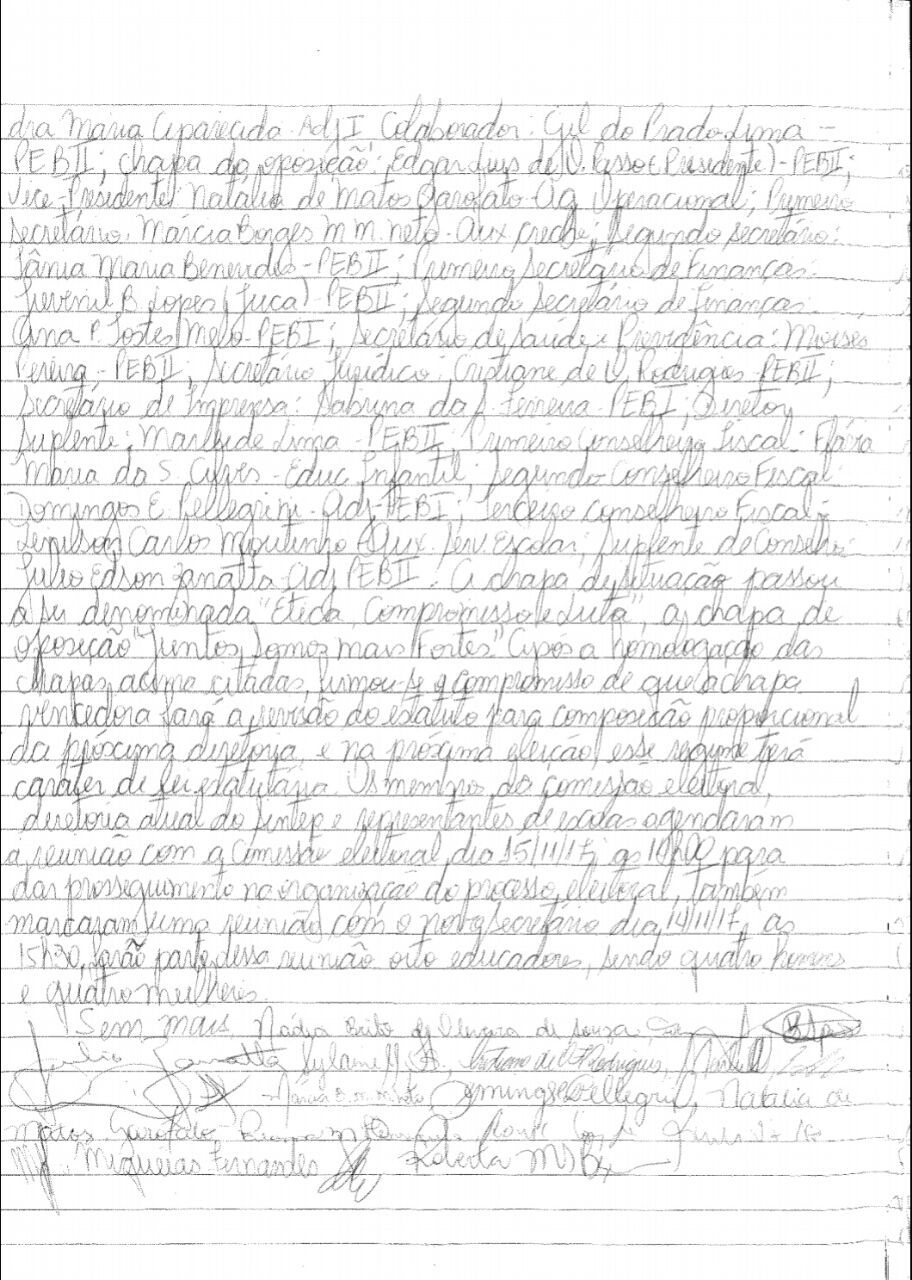 dra Maria Aparecida - Adj I Colaborador: Gil do Prado Lima -
PEB II; chapa da oposição: Edgar Luis de O. Passo (Presidente) - PEB II;
Vice-Presidente: Natália de Matos Garofalo - Ag Operacional; Primeiro
Secretário: Márcia Borges M M. Neto - Aux creche; Segundo secretário:
Tânia Maria Benevides - PEB II; Primeiro Secretário de Finanças:
Juvenil B. Lopes (Juca) - PEB II; Segundo Secretário de Finanças:
Ana P. Tostes Melo - PEB I; Secretário de Saúde e Previdência: Moises
Pereira - PEB II; Secretário Jurídico: Cristiane de O. Rodrigues - PEB II;
Secretário de Imprensa: Sabrina da S. Ferreira - PEB I; Diretor
Suplente: de Lima - PEB II; Primeiro Conselheiro Fiscal: Flávia
Maria da S. - Educ. Infantil; Segundo Conselheiro Fiscal:
Domingos E. Pellegrini - Adj - PEB I; Terceiro conselheiro Fiscal -
Carlos Moutinho - Aux. Serv. Escolar; Suplente de Conselho:
Julio Edson Zanatta - Adj PEB II. A chapa de situação passou
a ser denominada "Ética, Compromisso e Luta", a chapa de
oposição "Juntos Somos mais Fortes" Após a homologação das
chapas acima citadas, firmou-se o compromisso de que a chapa
vencedora fará a revisão do estatuto para composição proporcional
da próxima diretoria, e na próxima eleição, esse regime terá
caráter de lei estatutária. Os membros da comissão eleitoral,
diretoria atual do Sintep e representantes de escolas agendaram
a reunião com a Comissão eleitoral, dia 15/11/17, às 10h00 para
dar prosseguimento na organização do processo eleitoral, também
marcaram uma reunião com o novo secretário dia, 14/11/17, às
15h30, farão parte dessa reunião oito educadores, sendo quatro homens
e quatro mulheres.
Sem mais Nadja Brito de Oliveira de Souza
Julio Zanatta Cristiane de O. Rodrigues,
Domingos E Pellegrini, Natalia de
Matos Garofalo,
Miqueias Fernandes Roberta